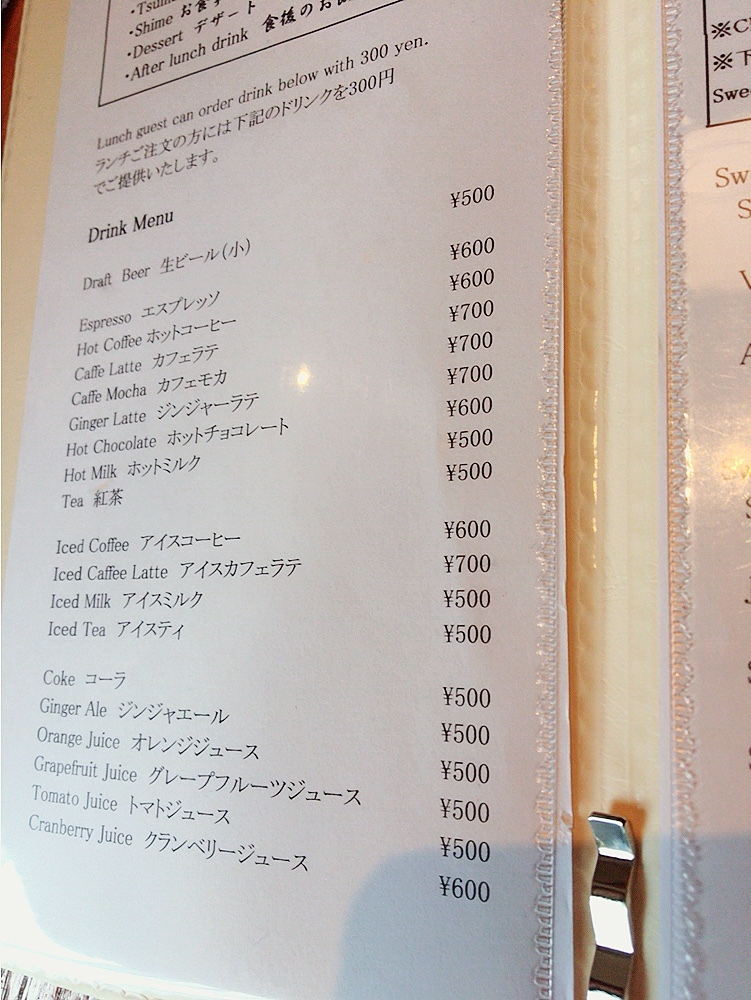 ・Shime お食事
・Dessert デザート
・After lunch drink 食後のお飲
Lunch guest can order drink below with 300 yen.
ランチご注文の方には下記のドリンクを300円
でご提供いたします。
Drink Menu
Draft Beer 生ビール(小) ¥500
Espresso エスプレッソ ¥600
Hot Coffee ホットコーヒー ¥600
Caffe Latte カフェラテ ¥700
Caffe Mocha カフェモカ ¥700
Ginger Latte ジンジャーラテ ¥700
Hot Chocolate ホットチョコレート ¥600
Hot Milk ホットミルク ¥500
Tea 紅茶 ¥500
Iced Coffee アイスコーヒー ¥600
Iced Caffee Latte アイスカフェラテ ¥700
Iced Milk アイスミルク ¥500
Iced Tea アイスティ ¥500
Coke コーラ ¥500
Ginger Ale ジンジャエール ¥500
Orange Juice オレンジジュース ¥500
Grapefruit Juice グレープフルーツジュース ¥500
Tomato Juice トマトジュース ¥500
Cranberry Juice クランベリージュース ¥600